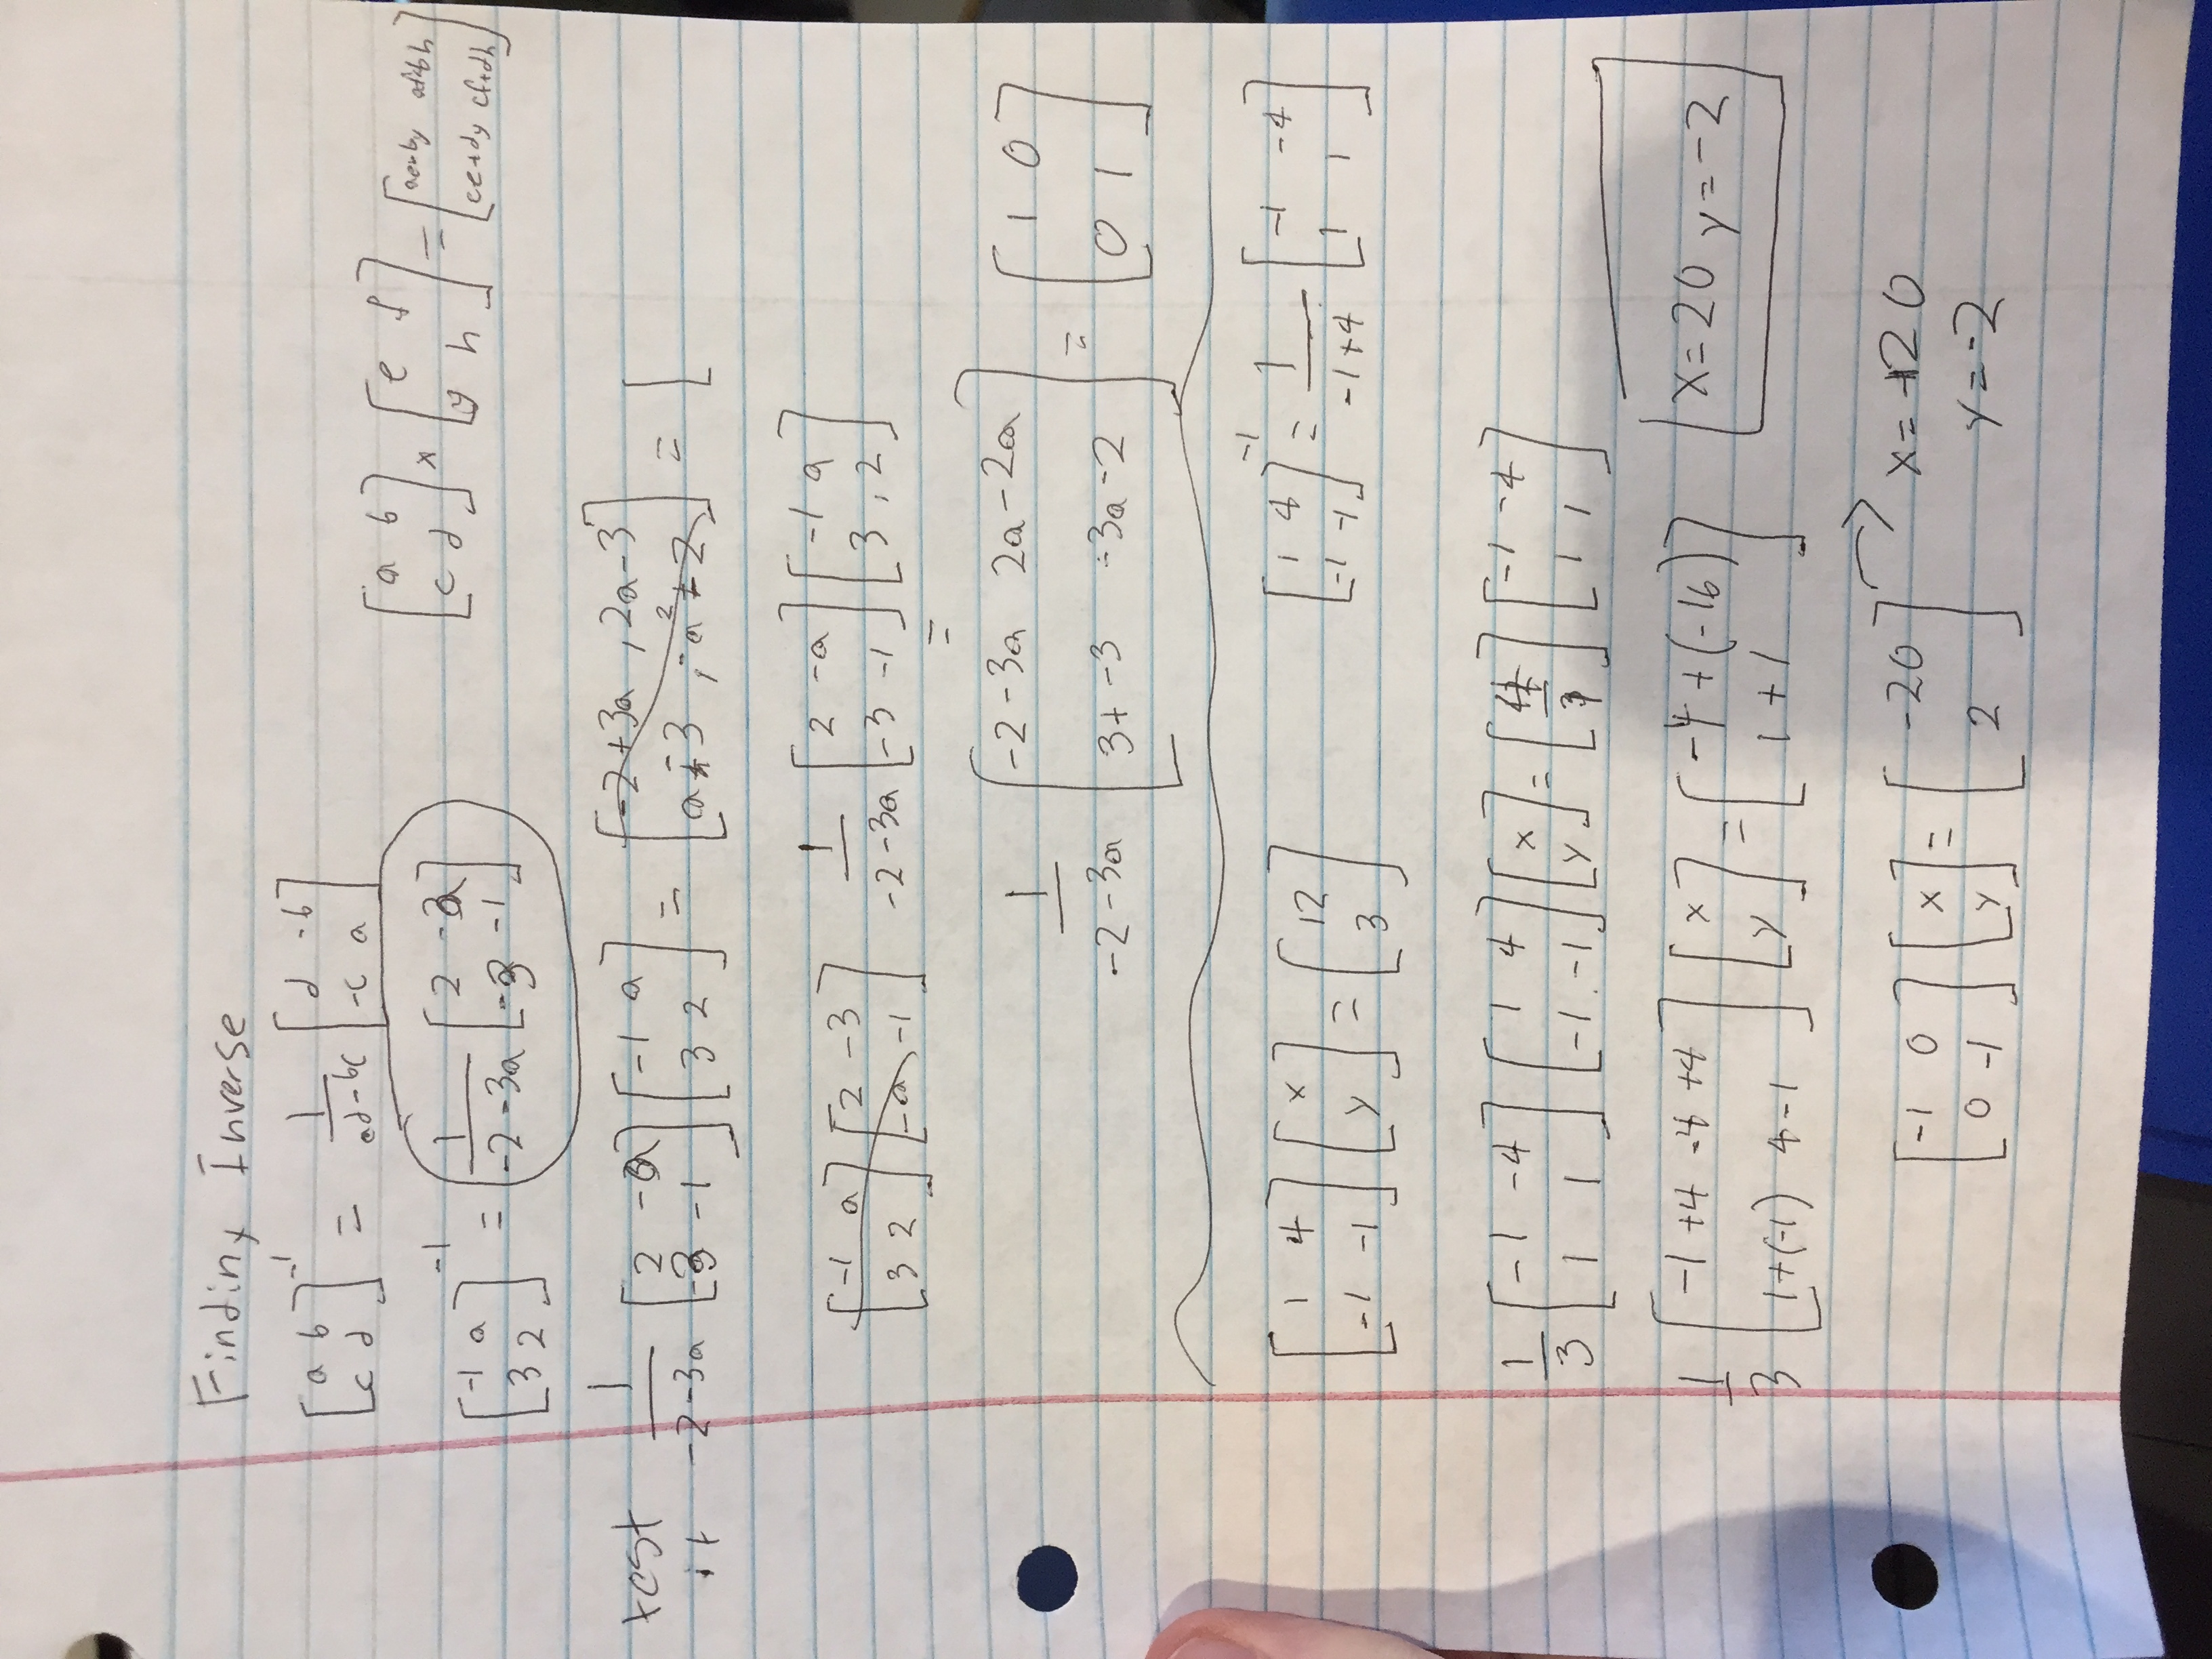 Finding Inverse
[a b; c d]^-1 = 1/(ad-bc) [d -b; -c a]
[a b; c d] x [e f; g h] = [ae+bg af+bh; ce+dg cf+dh]
[-1 a; 3 2]^-1 = 1/(-2-3a) [2 -a; -3 -1]
test it 1/(-2-3a) [2 -a; -3 -1] [-1 a; 3 2] = [-2+3a , 2a-3; a-3 , -a^2-2] = [
[-1 a; 3 2] [2 -3; -a -1] 1/(-2-3a) [2 -a; -3 -1] [-1 a; 3 , 2]
=
1/(-2-3a) [-2-3a 2a-2a; 3+-3 -3a-2] = [1 0; 0 1]
[1 4; -1 -1] [x; y] = [12; 3] [1 4; -1 -1]^-1 = 1/(-1+4) [-1 -4; 1 1]
1/3 [-1 -4; 1 1] [1 4; -1 -1] [x; y] = [ ] [-1 -4; 1 1]
1/3 [-1+4 -4+4; 1+(-1) 4-1] [x; y] = [-4+(-16); 1+1] x=20 y=-2
[-1 0; 0 -1] [x; y] = [-20; 2] → x=+20
y=-2